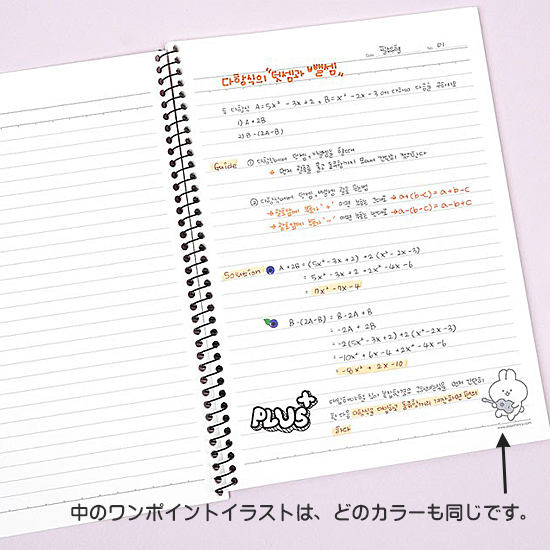 Date. 필쏘굿 No. 01
다항식의 "덧셈과 뺄셈"
두 다항식 A=5x² -3x+2, B=x² -2x-3에 대하여 다음을 구하여라
1) A+2B
2) B-(2A-B)
Guide ① 다항식에서 덧셈, 뺄셈을 할 때
→ 먼저 괄호를 풀고 동류항끼리 모아서 간단히 정리한다
② 다항식에서 덧셈, 뺄셈 괄호 푸는법
→ 괄호앞에 부호가 "+" 이면 부호는 그대로 → a+(b-c) = a+b-c
→ 괄호앞에 부호가 "-" 이면 부호는 반대로 → a-(b-c) = a-b+c
Solution A+2B = (5x² -3x+2) +2(x² -2x-3)
= 5x² -3x+2 +2x² -4x-6
= 7x² -7x-4
B-(2A-B) = B-2A+B
= -2A + 2B
= -2(5x² -3x+2) +2(x²-2x-3)
= -10x² +6x-4 +2x² -4x-6
= -8x² + 2x -10
PLUS+
다항식
먼저 간단히
한 다음
동류항끼리 계산하면 편리
하다
中のワンポイントイラストは、どのカラーも同じです。